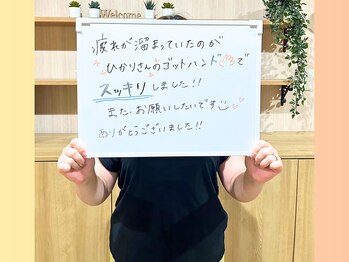 Welcome
疲れが溜まっていたのが
ひかりさんのゴットハンドで
スッキリしました!!
また、お願いしたいです
ありがとうございました!!